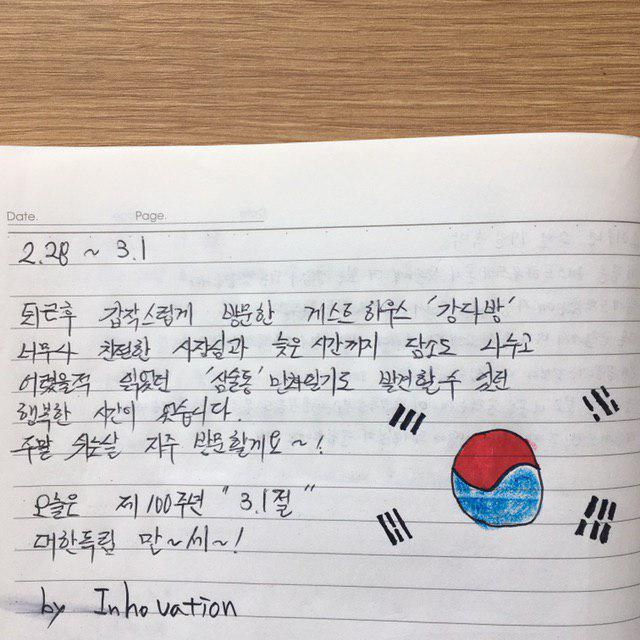 Date.
Page.
2.28 ~ 3.1
퇴근후 갑작스럽게 방문한 게스트하우스 '강다방'
너무나 친절한 사장님과 늦은 시간까지 담소도 나누고
어렸을적 읽었던 '삼술동' 만화일기도 발견할 수 있던
행복한 시간이 었습니다.
주말 쉬는날 자주 방문할게요~!
오늘은 제100주년 "3.1절"
대한독립 만~세~!
by Inhovation